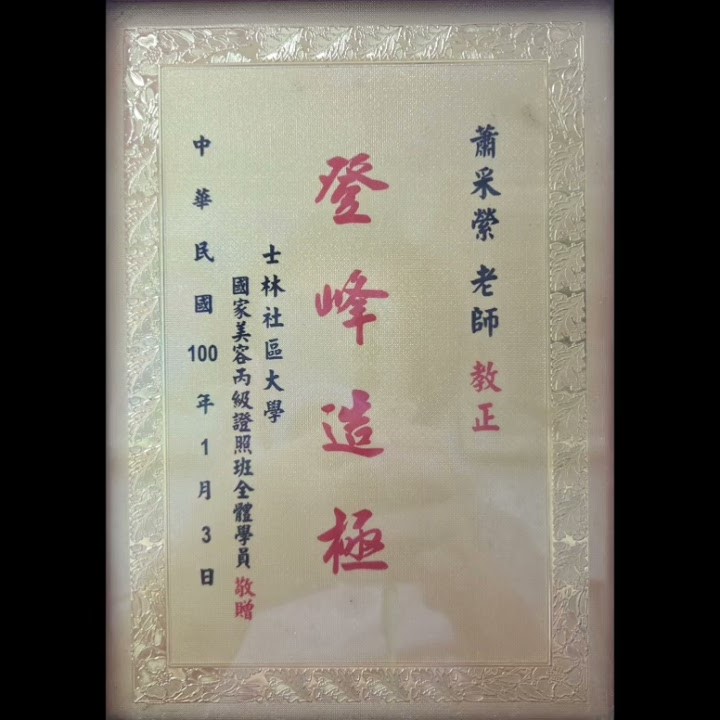 蕭采縈 老師 教正
登峰造極
士林社區大學
國家美容丙級證照班全體學員 敬贈
中華民國100年1月3日